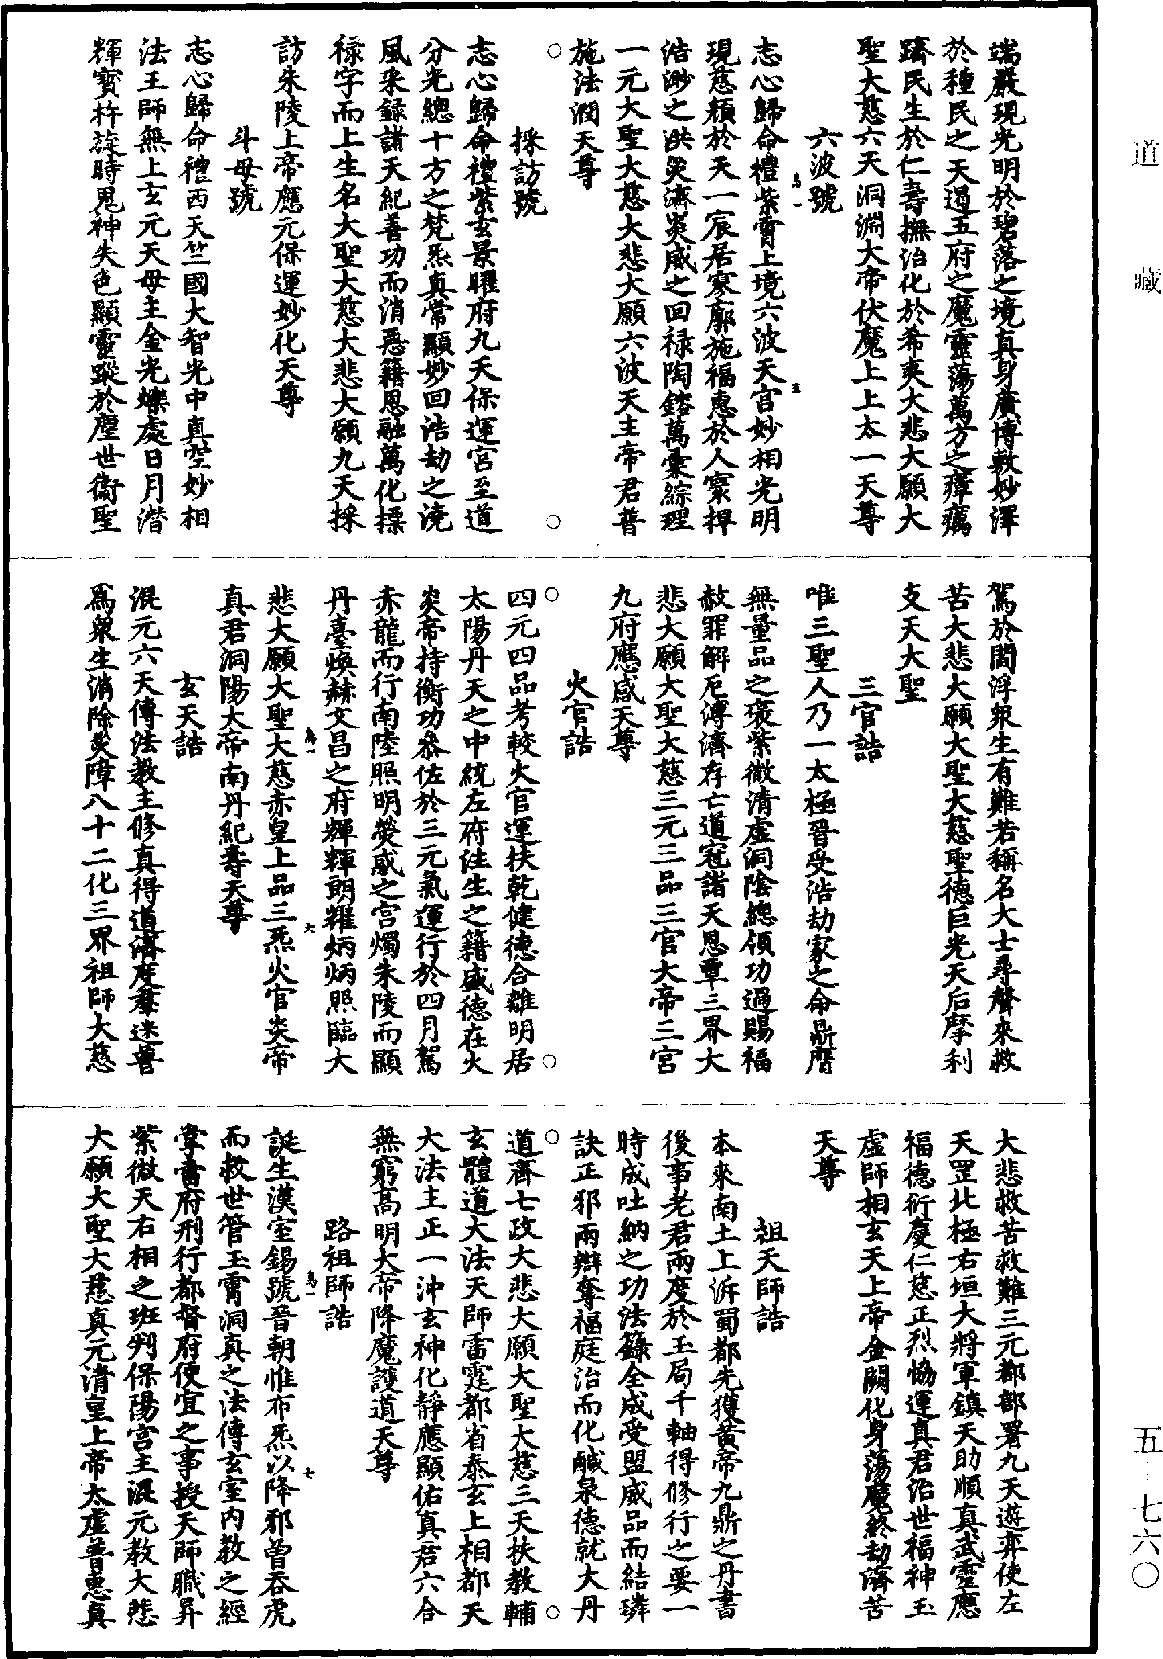 道藏
五·七六〇
端嚴現光明於碧落之境真身廣博敷妙澤
於種民之天遏五府之魔靈蕩萬方之瘴癘
躋民生於仁壽撫治化於希夷大悲大願大
聖大慈六天洞淵大帝伏魔上上太一天尊
六波號
志心歸命禮紫霄上境六波天宮妙相光明
現慈顏於天一宸居寥廓施福惠於人寰捍
浩渺之洪災濟炎威之回祿陶鎔萬彙綜理
一元大聖大慈大悲大願六波天主帝君普
施法潤天尊
採訪號
志心歸命禮紫玄景曜府九天保運宮至道
分光總十方之梵炁真常顯妙回浩劫之澆
風采錄諸天紀善功而消惡籍恩融萬化摽
祿字而上生名大聖大慈大悲大願九天採
訪朱陵上帝應元保運妙化天尊
斗母號
志心歸命禮西天竺國大智光中真空妙相
法王師無上玄元天母主金光爍處日月潛
輝寶杵旋時鬼神失色顯靈蹤於塵世衛聖
駕於閻浮眾生有難若稱名大士尋聲來救
苦大悲大願大聖大慈聖德巨光天后摩利
支天大聖
三官誥
唯三聖人乃一太極晉受浩劫家之命鼎膺
無量品之褒紫微清虛洞陰總領功過賜福
赦罪解厄溥濟存亡道冠諸天恩覃三界大
悲大願大聖大慈三元三品三官大帝三宮
九府應感天尊
火官誥
四元四品考較火官運扶乾健德合離明居
太陽丹天之中統左府注生之籍盛德在火
炎帝持衡功參佐於三元氣運行於四月駕
赤龍而行南陸照明熒惑之宮燭朱陵而顯
丹臺煥赫文昌之府輝輝朗耀炳炳照臨大
悲大願大聖大慈赤皇上品三炁火官炎帝
真君洞陽大帝南丹紀壽天尊
玄天誥
混元六天傳法教主修真得道濟度羣迷普
為眾生消除災障八十二化三界祖師大慈
大悲救苦救難三元都部署九天遊弈使左
天罡北極右垣大將軍鎮天助順真武靈應
福德衍慶仁慈正烈協運真君治世福神玉
虛師相玄天上帝金闕化身蕩魔終劫濟苦
天尊
祖天師誥
本來南土上泝蜀都先獲黃帝九鼎之丹書
後事老君兩度於玉局千軸得修行之要一
時成吐納之功法籙全成受盟威品而結璘
訣正邪兩辯奪福庭治而化鹹泉德就大丹
道齊七政大悲大願大聖大慈三天扶教輔
玄體道大法天師雷霆都省泰玄上相都天
大法主正一沖玄神化靜應顯佑真君六合
無窮高明大帝降魔護道天尊
路祖師誥
誕生漢室錫號晉朝惟布炁以降邪曾吞虎
而救世管玉霄洞真之法傳玄室內教之經
掌書府刑行都督府便宜之事授天師職昇
紫微天右相之班判保陽宮主混元教大悲
大願大聖大慈真元清皇上帝太虛普惠真